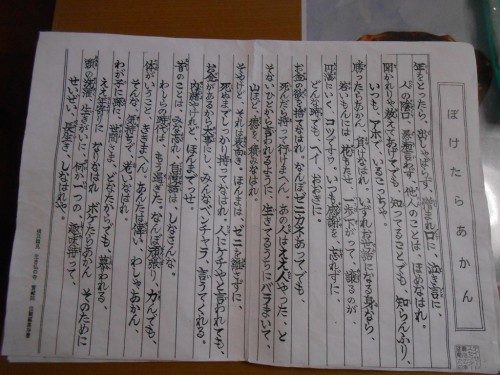 ぼけたらあかん
年をとったら、出しゃばらず、憎まれ口に、泣き言に、
人の陰口、愚痴言わず、他人のことは、ほめなはれ。
聞かれりゃ教えてあげてでも、知ってることでも、知らんふり、
いつも、アホで、いるこっちゃ。
勝ったらあかん、負けなはれ、いずれお世話になる身なら、
若いもんには、花もたせ、一歩さがって、譲るのが、
円満にいく、コツですわ。いつも感謝を、忘れずに、
どんな時でも、ヘイ、おおきに。
お金の欲を捨てなはれ、なんぼゼニカネあってでも、
死んだら持って行けまへん、あの人はええ人やった、と
そないひとから言われるように、生きてるうちにバラまいて、
山ほど、徳を、積みなはれ。
そやけど、それは表向き。ほんまは、ゼニを離さずに、
死ぬまでしっかり持ってなはれ。人にケチやと言われても、
お金があるから大事にし、みんなベンチャラ、言うてくれる。
内緒やけれど、ほんまでっせ。
昔のことは、みな忘れ、自慢話は、しなさんな、
わしらの時代は、もう過ぎた。なんぼ頑張り、力んでも、
体がいうこと、ききまへん。あんたは偉い、わしゃあかん、
そんな、気持ちで、老いなはれ。
わが子に孫に、世間さま、どなたからでも、慕われる、
ええ年寄りに、なりなはれ。ボケたらあかん そのために
頭の洗濯、生きがいに、何か一つの、趣味持って、
せいぜい、長生き、しなはれや。